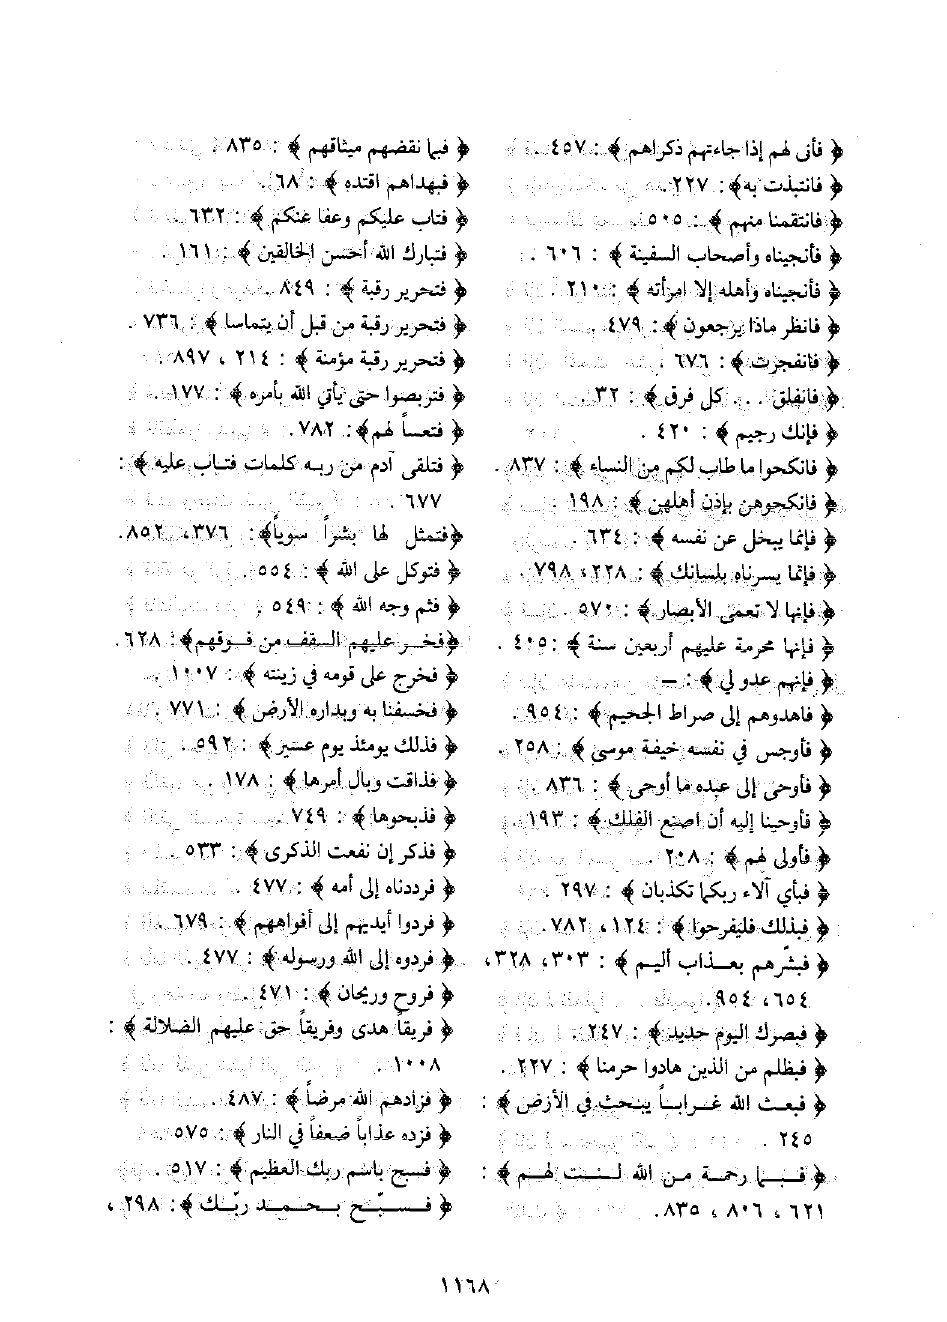 ﴿ فأنى لهم إذا جاءتهم ذكراهم ﴾ : ٤٥٧ .
﴿ فانتبذت به﴾: ٢٢٧ .
﴿ فانتقمنا منهم ﴾: ٥٠٥ .
﴿ فأنجيناه وأصحاب السفينة ﴾ : ٦٠٦ .
﴿ فأنجيناه وأهله إلا امرأته ﴾ : ٢١٠ .
﴿ فانظر ماذا يرجعون ﴾: ٤٧٩ .
﴿ فانفجرت ﴾: ٦٧٦ .
﴿ فانفلق . . . كل فرق ﴾ : ٣٢ .
﴿ فإنك رجيم ﴾ : ٤٢٠ .
﴿ فانكحوا ما طاب لكم من النساء ﴾ : ٨٣٧ .
﴿ فانكحوهن بإذن أهلهن ﴾ : ١٩٨ .
﴿ فإنما يبخل عن نفسه ﴾ : ٦٣٤ .
﴿ فإنما يسرناه بلسانك ﴾ : ٢٢٨، ٧٩٨ .
﴿ فإنها لا تعمى الأبصار ﴾ : ٥٧٠ .
﴿ فإنها محرمة عليهم أربعين سنة ﴾ : ٤٠٥ .
﴿ فإنهم عدو لي ﴾ : –
﴿ فاهدوهم إلى صراط الجحيم ﴾ : ٩٥٤ .
﴿ فأوجس في نفسه خيفة موسى ﴾ : ٢٥٨ .
﴿ فأوحى إلى عبده ما أوحى ﴾ : ٨٣٦ .
﴿ فأوحينا إليه أن اصنع الفلك ﴾ : ١٩٣ .
﴿ فأولى لهم ﴾ : ٢٠٨ .
﴿ فبأي آلاء ربكما تكذبان ﴾ : ٢٩٧ .
﴿ فبذلك فليفرحوا ﴾ : ١٢٤ ، ٧٨٢ .
﴿ فبشّرهم بعـذاب أليم ﴾ : ٣٠٣، ٣٢٨،
٦٥٤، ٩٥٤ .
﴿ فبصرك اليوم حديد ﴾ : ٢٤٧ .
﴿ فبظلم من الذين هادوا حرمنا ﴾ : ٢٢٧ .
﴿ فبعث الله غـرابـاً يبحث في الأرض ﴾ :
٢٤٥ .
﴿ فـبـما رحمـة مـن الله لـنـت لهـم ﴾ :
٦٢١ ، ٨٠٦ ، ٨٣٥ .
﴿ فبما نقضهم ميثاقهم ﴾ : ٨٣٥ .
﴿ فبهداهم اقتده ﴾ : ٦٨ .
﴿ فتاب عليكم وعفا عنكم ﴾ : ٦٣٢ .
﴿ فتبارك الله أحسن الخالقين ﴾ : ١٦١ .
﴿ فتحرير رقبة ﴾ : ٨٤٩ .
﴿ فتحرير رقبة من قبل أن يتماسا ﴾ : ٧٣٦ .
﴿ فتحرير رقبة مؤمنة ﴾ : ٢١٤ ، ٨٩٧ .
﴿ فتربصوا حتى يأتي الله بأمره ﴾ : ١٧٧ .
﴿ فتعساً لهم ﴾: ٧٨٢ .
﴿ فتلقى آدم من ربـه كلمات فتـاب عليه ﴾ :
٦٧٧ .
﴿فتمثل لها بشراً سوياً﴾: ٣٧٦، ٨٥٢ .
﴿ فتوكل على الله ﴾ : ٥٥٤ .
﴿ فثم وجه الله ﴾ : ٥٤٩ .
﴿فخـر عليهم السقف من فـوقهم﴾: ٦٢٨ .
﴿ فخرج على قومه في زينته ﴾ : ١٠٠٧ .
﴿ فخسفنا به وبداره الأرض ﴾ : ٧٧١ .
﴿ فذلك يومئذ يوم عسير ﴾ : ٥٩٢ .
﴿ فذاقت وبال أمرها ﴾ : ١٧٨ .
﴿ فذبحوها ﴾ : ٧٤٩
﴿ فذكر إن نفعت الذكرى ﴾ : ٥٣٣ .
﴿ فرددناه إلى أمه ﴾ : ٤٧٧ .
﴿ فردوا أيديهم إلى أفواههم ﴾ : ٦٧٩ .
﴿ فردوه إلى الله ورسوله ﴾ : ٤٧٧ .
﴿ فروح وريحان ﴾ : ٤٧١ .
﴿ فريقاً هدى وفريقاً حق عليهم الضلالة ﴾ :
١٠٠٨ .
﴿ فزادهم الله مرضاً ﴾ : ٤٨٧ .
﴿ فزده عذاباً ضعفاً في النار ﴾ : ٥٧٥ .
﴿ فسبح باسم ربك العظيم ﴾ : ٥١٧ .
﴿ فـسـبّـح بـحـمـد ربّـك ﴾: ٢٩٨ ،
١١٦٨